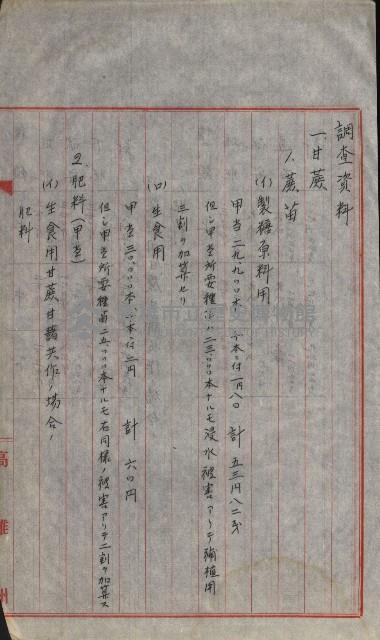 調査資料
一、甘蔗
1、蔗苗
(イ)製糖原料用
甲当二九、九〇〇本 計 五三円八二戋
但シ甲当所要種苗ハ二三、〇〇〇本ナルモ浸水被害アリテ補植用
三割ヲ加算セリ
(ロ)生食用
甲当三〇、〇〇〇本 計 六〇円
但シ甲当所要種苗二五、〇〇〇本ナルモ右同様ノ被害アリテ二割ヲ加算ス
2、肥料(甲当)
(イ)生食用甘蔗甘藷共作ノ場合ノ
肥料
高雄州